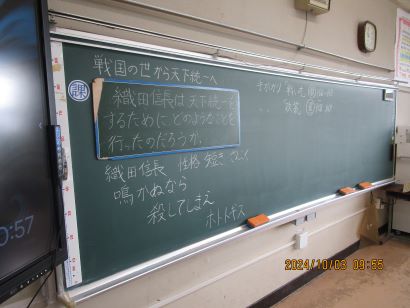 戦国の世から天下統一へ
課
織田信長は天下統一を
するために、どのようなことを
行ったのだろうか。
織田信長 性格 短き
鳴かぬなら
殺してしまえ
ホトトギス
0:57
2024/10/08 09:55